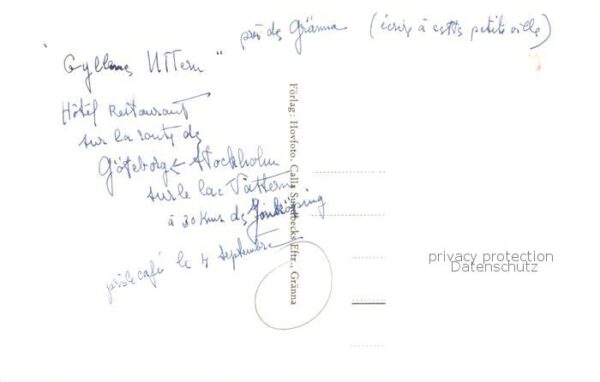 "Gyllene Uttern" près de Gränna (écrire à cette petite ville)
Hôtel Restaurant
sur la route de
Göteborg ← Stockholm
sur le lac Vättern
à 30 Kms de Jönköping
pris le café le 4 septembre
Förlag: Hovfoto. Calla Sundbecks Eftr., Gränna
privacy protection
Datenschutz